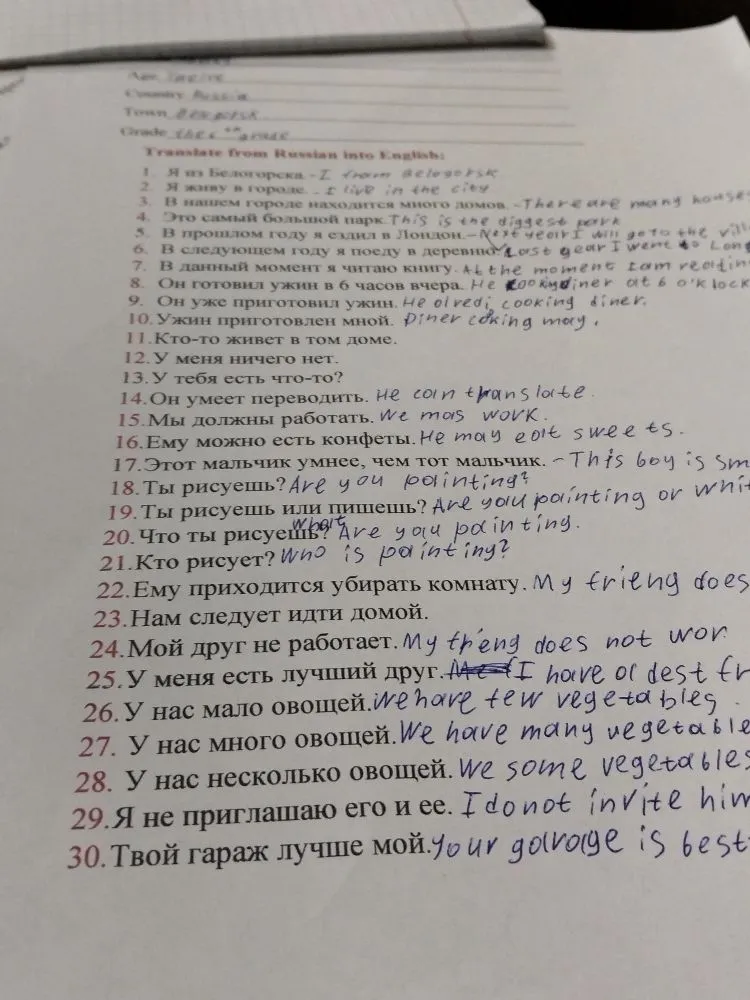 Country Russia
Town
Grade the 6th grade
Translate from Russian into English:
1. Я из Белогорска - I from Belogorsk
2. Я живу в городе. - I live in the city
3. В нашем городе находится много домов. - There are many houses
4. Это самый большой парк. This is the diggest park
5. В прошлом году я ездил в Лондон. - Next year I will go to the vill
6. В следующем году я поеду в деревню. Last year I went to Lon
7. В данный момент я читаю книгу. At the moment I am readin
8. Он готовил ужин в 6 часов вчера. He diner at 6 o'klock
9. Он уже приготовил ужин. He olredi cooking diner.
10. Ужин приготовлен мной. Diner coking may.
11. Кто-то живет в том доме.
12. У меня ничего нет.
13. У тебя есть что-то?
14. Он умеет переводить. He can translate.
15. Мы должны работать. We mas work.
16. Ему можно есть конфеты. He may eat sweets.
17. Этот мальчик умнее, чем тот мальчик. - This boy is sm
18. Ты рисуешь? Are you painting?
19. Ты рисуешь или пишешь? Are you painting or whit
20. Что ты рисуешь? What Are you painting.
21. Кто рисует? Who is painting?
22. Ему приходится убирать комнату. My frieng does
23. Нам следует идти домой.
24. Мой друг не работает. My frieng does not wor
25. У меня есть лучший друг. I have a dest fr
26. У нас мало овощей. We have few vegetables.
27. У нас много овощей. We have many vegetable
28. У нас несколько овощей. We some vegetables
29. Я не приглашаю его и ее. I do not invite him
30. Твой гараж лучше мой. Your garage is best